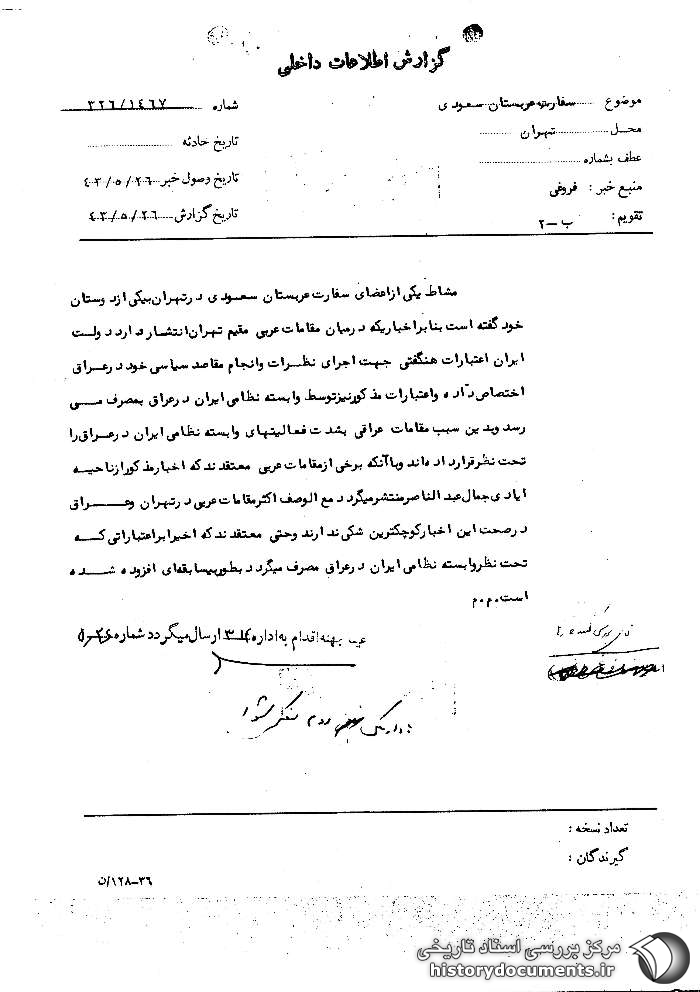 گزارش اطلاعات داخلی
موضوع سفارت عربستان سعودی
شماره ۳۲۶/۱۴۶۷
محل تهران
تاریخ حادثه
عطف بشماره
تاریخ وصول خبر ۴۳/۵/۲۶
منبع خبر : فروغی
تاریخ گزارش ۴۳/۵/۲۶
تقویم : ب -۲
مشاط یکی از اعضای سفارت عربستان سعودی در تهران بیکی از دوستان
خود گفته است بنا بر اخباریکه در میان مقامات عربی مقیم تهران انتشار دارد دولت
ایران اعتبارات هنگفتی جهت اجرای نظرات و انجام مقاصد سیاسی خود در عراق
اختصاص داده و اعتبارات مذکور نیز توسط وابسته نظامی ایران در عراق بمصرف می
رسد و بدین سبب مقامات عراقی بشدت فعالیتهای وابسته نظامی ایران در عراق را
تحت نظر قرار داده اند و با آنکه برخی از مقامات عربی معتقدند که اخبار مذکور از ناحیه
ایادی جمال عبد الناصر منتشر میگردد مع الوصف اکثر مقامات عربی در تهران و عراق
در صحت این اخبار کوچکترین شکی ندارند و حتی معتقدند که اخیرا بر اعتباراتی که
تحت نظر وابسته نظامی ایران در عراق مصرف میگردد بطور بیسابقه‌ای افزوده شده
است.م.م
بهنه اقدام به اداره ارسال میگردد شماره
تعداد نسخه :
گیرندگان :
۳۶-۱۲۸/ن
مرکز بررسی اسناد تاریخی
historydocuments.ir